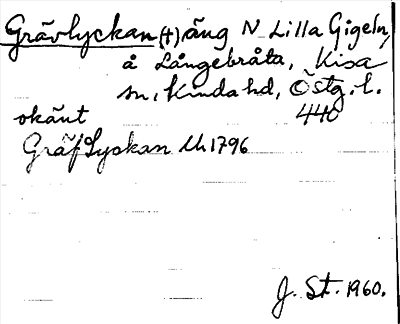 Grävlyckan (†) äng N Lilla Gigeln,
å Långebråta, Kisa
sn, Kinda hd, Östg. l.
okänt 440
Gräf Lyckan Ch 1796
J. St. 1960.